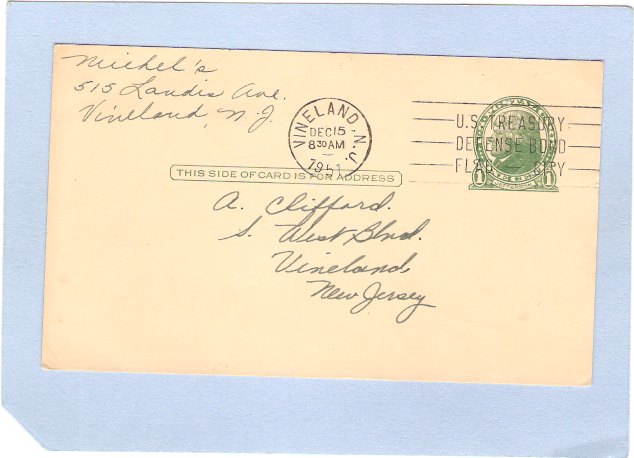 Michel's
515 Landis Ave.
Vineland, N.J.
VINELAND, N.J.
DEC 15
8 30 AM
1951
U.S. TREASURY
DEFENSE BOND
FLAG CITY
THIS SIDE OF CARD IS FOR ADDRESS
1 1
A. Clifford.
S. West Blvd.
Vineland
New Jersey